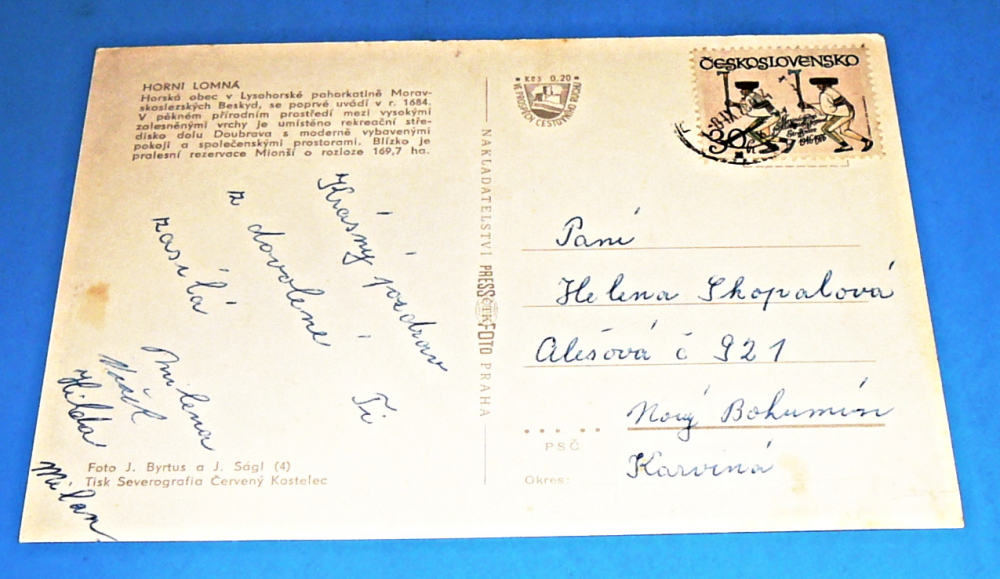 HORNÍ LOMNÁ
Horská obec v Lysohorské pahorkatině Morav-
skoslezských Beskyd, se poprvé uvádí v r. 1684.
V pěkném přírodním prostředí mezi vysokými
zalesněnými vrchy je umístěno rekreační stře-
disko dolu Doubrava s moderně vybavenými
pokoji a společenskými prostorami. Blízko je
pralesní rezervace Mionší o rozloze 169,7 ha.
Krásný pozdrav
z dovolené Ti
zasílá
Milena
Hilda
Milan
Foto J. Byrtus a J. Ságl (4)
Tisk Severografia Červený Kostelec
NAKLADATELSTVÍ PRESSFOTO PRAHA
ČTK
Kčs 0,20
VE PROSPĚCH CESTOVNÍHO RUCHU
ČESKOSLOVENSKO
30
Paní
Helena Skopalová
Alešová č 921
Nový Bohumín
PSČ
Karviná
Okres: